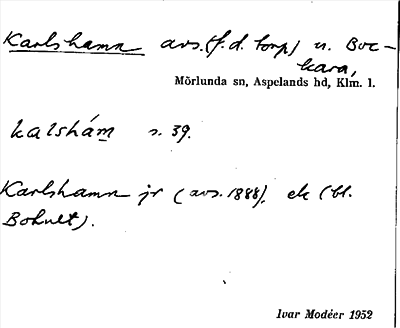 Karlshamn avs. (f.d. torp) u. Boc-
kara,
Mörlunda sn, Aspelands hd, Klm. l.
kalshám s. 39.
Karlshamn jr (avs. 1888), ek (bl.
Bohult).
Ivar Modéer 1952